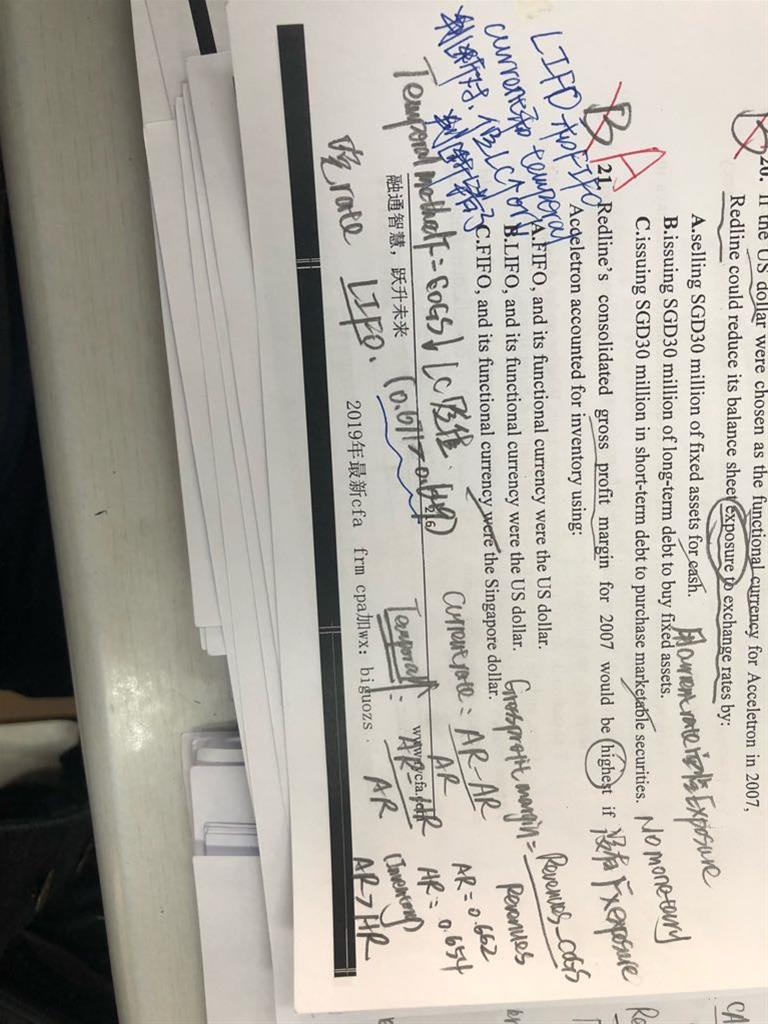 20. If the US dollar were chosen as the functional currency for Acceletron in 2007,
Redline could reduce its balance sheet exposure to exchange rates by:
A.selling SGD30 million of fixed assets for cash.
B.issuing SGD30 million of long-term debt to buy fixed assets.
C.issuing SGD30 million in short-term debt to purchase marketable securities.
No monetary
B A
21. Redline's consolidated gross profit margin for 2007 would be highest if
Acceletron accounted for inventory using:
A.FIFO, and its functional currency were the US dollar.
B.LIFO, and its functional currency were the US dollar.
C.FIFO, and its functional currency were the Singapore dollar.
LIFO 和FIFO
current和 temporal
Gross profit margin = Revenues-COGS
Revenues
Current rate = AR-AR
AR
AR = 0.662
HR = 0.654
Temporal method = COGS↓
融通智慧，跃升未来
www.cfa.com
Temporal = AR-HR
AR
(Inventory)
AR > HR
rate LIFO.
2019年最新cfa frm cpa加wx：biguozs